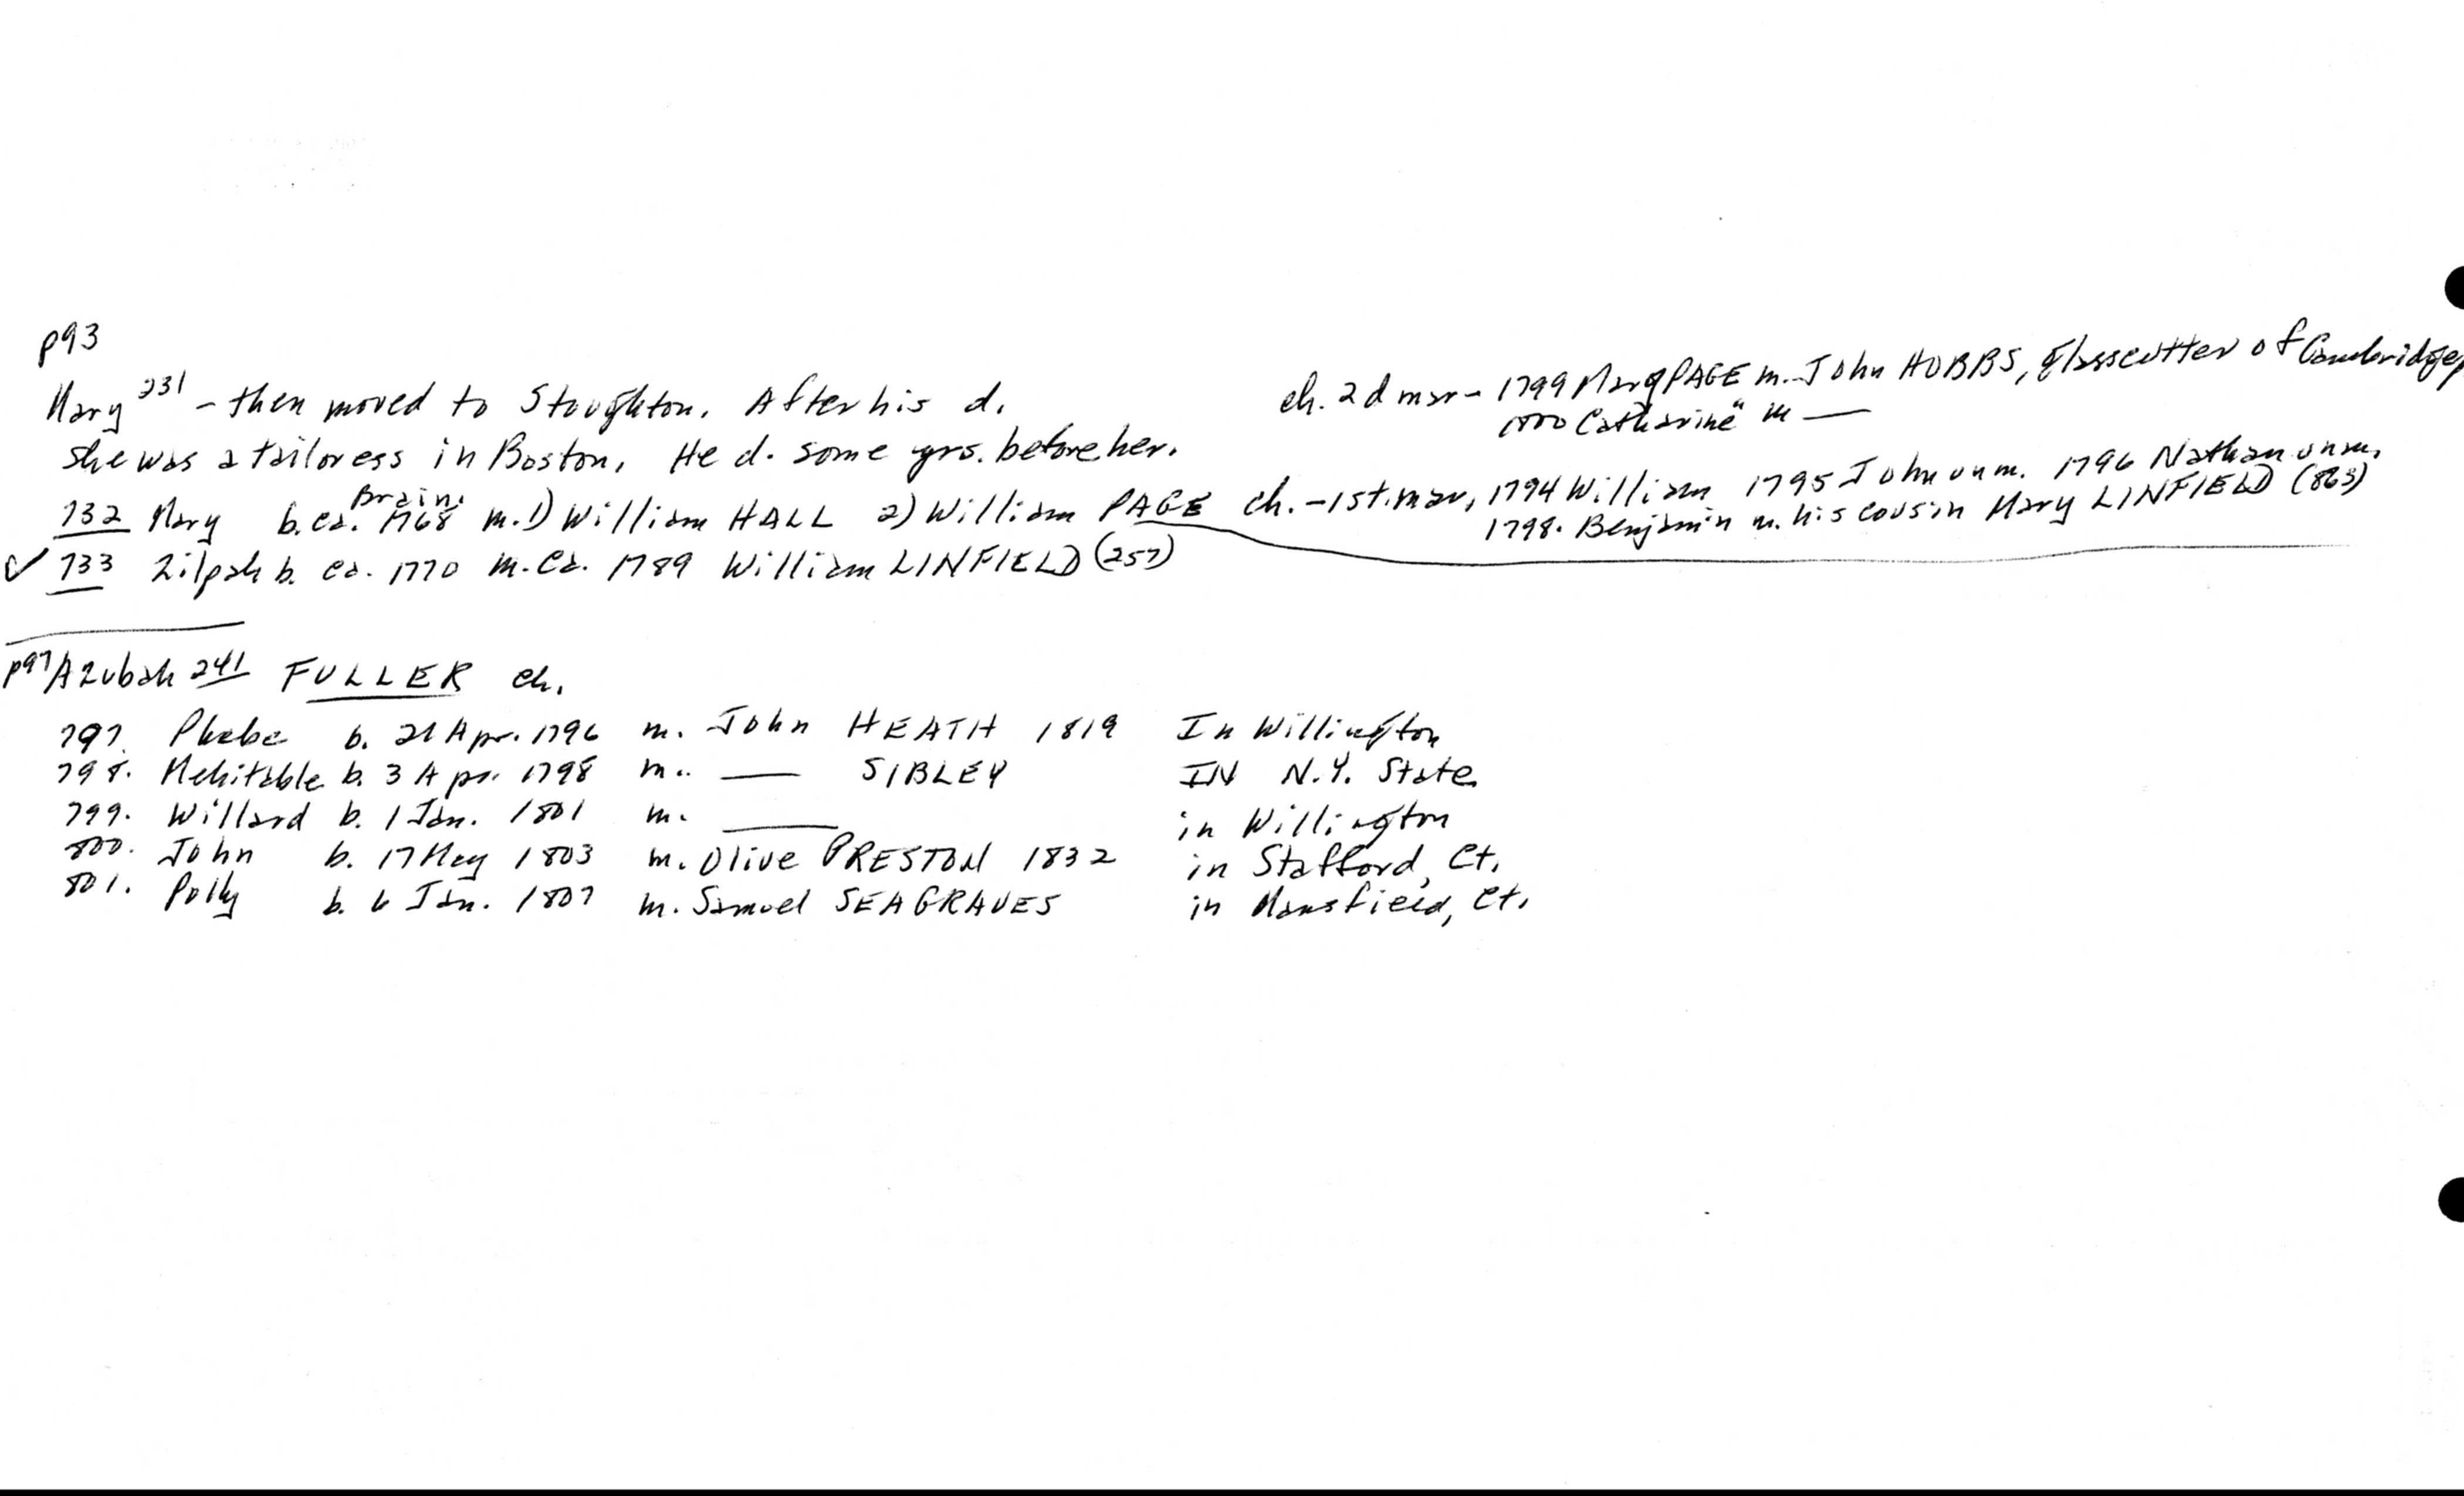 p93
Mary 231 - then moved to Stoughton. After his d.
she was a tailoress in Boston. He d. some yrs. before her.
ch. 2d mar - 1799 Mary PAGE m. John HOBBS, glasscutter of Cambridge,
1800 Catharine " m —
Brain.
732 Mary b. ca. 1768 m. 1) William HALL 2) William PAGE ch. - 1st. mar, 1794 William 1795 John unm. 1796 Nathan unm.
1798. Benjamin m. his cousin Mary LINFIELD (863)
✓ 733 Zilpah b. ca. 1770 m. Ca. 1789 William LINFIELD (257)
p97 Azubah 241 FULLER ch.
797. Phebe b. 21 Apr. 1796 m. John HEATH 1819 In Willington
798. Mehitable b. 3 Apr. 1798 m. — SIBLEY IN N.Y. State
799. Willard b. 1 Jan. 1801 m. — in Willington
800. John b. 17 May 1803 m. Olive PRESTON 1832 in Stafford, Ct.
801. Polly b. 6 Jan. 1807 m. Samuel SEAGRAVES in Mansfield, Ct.